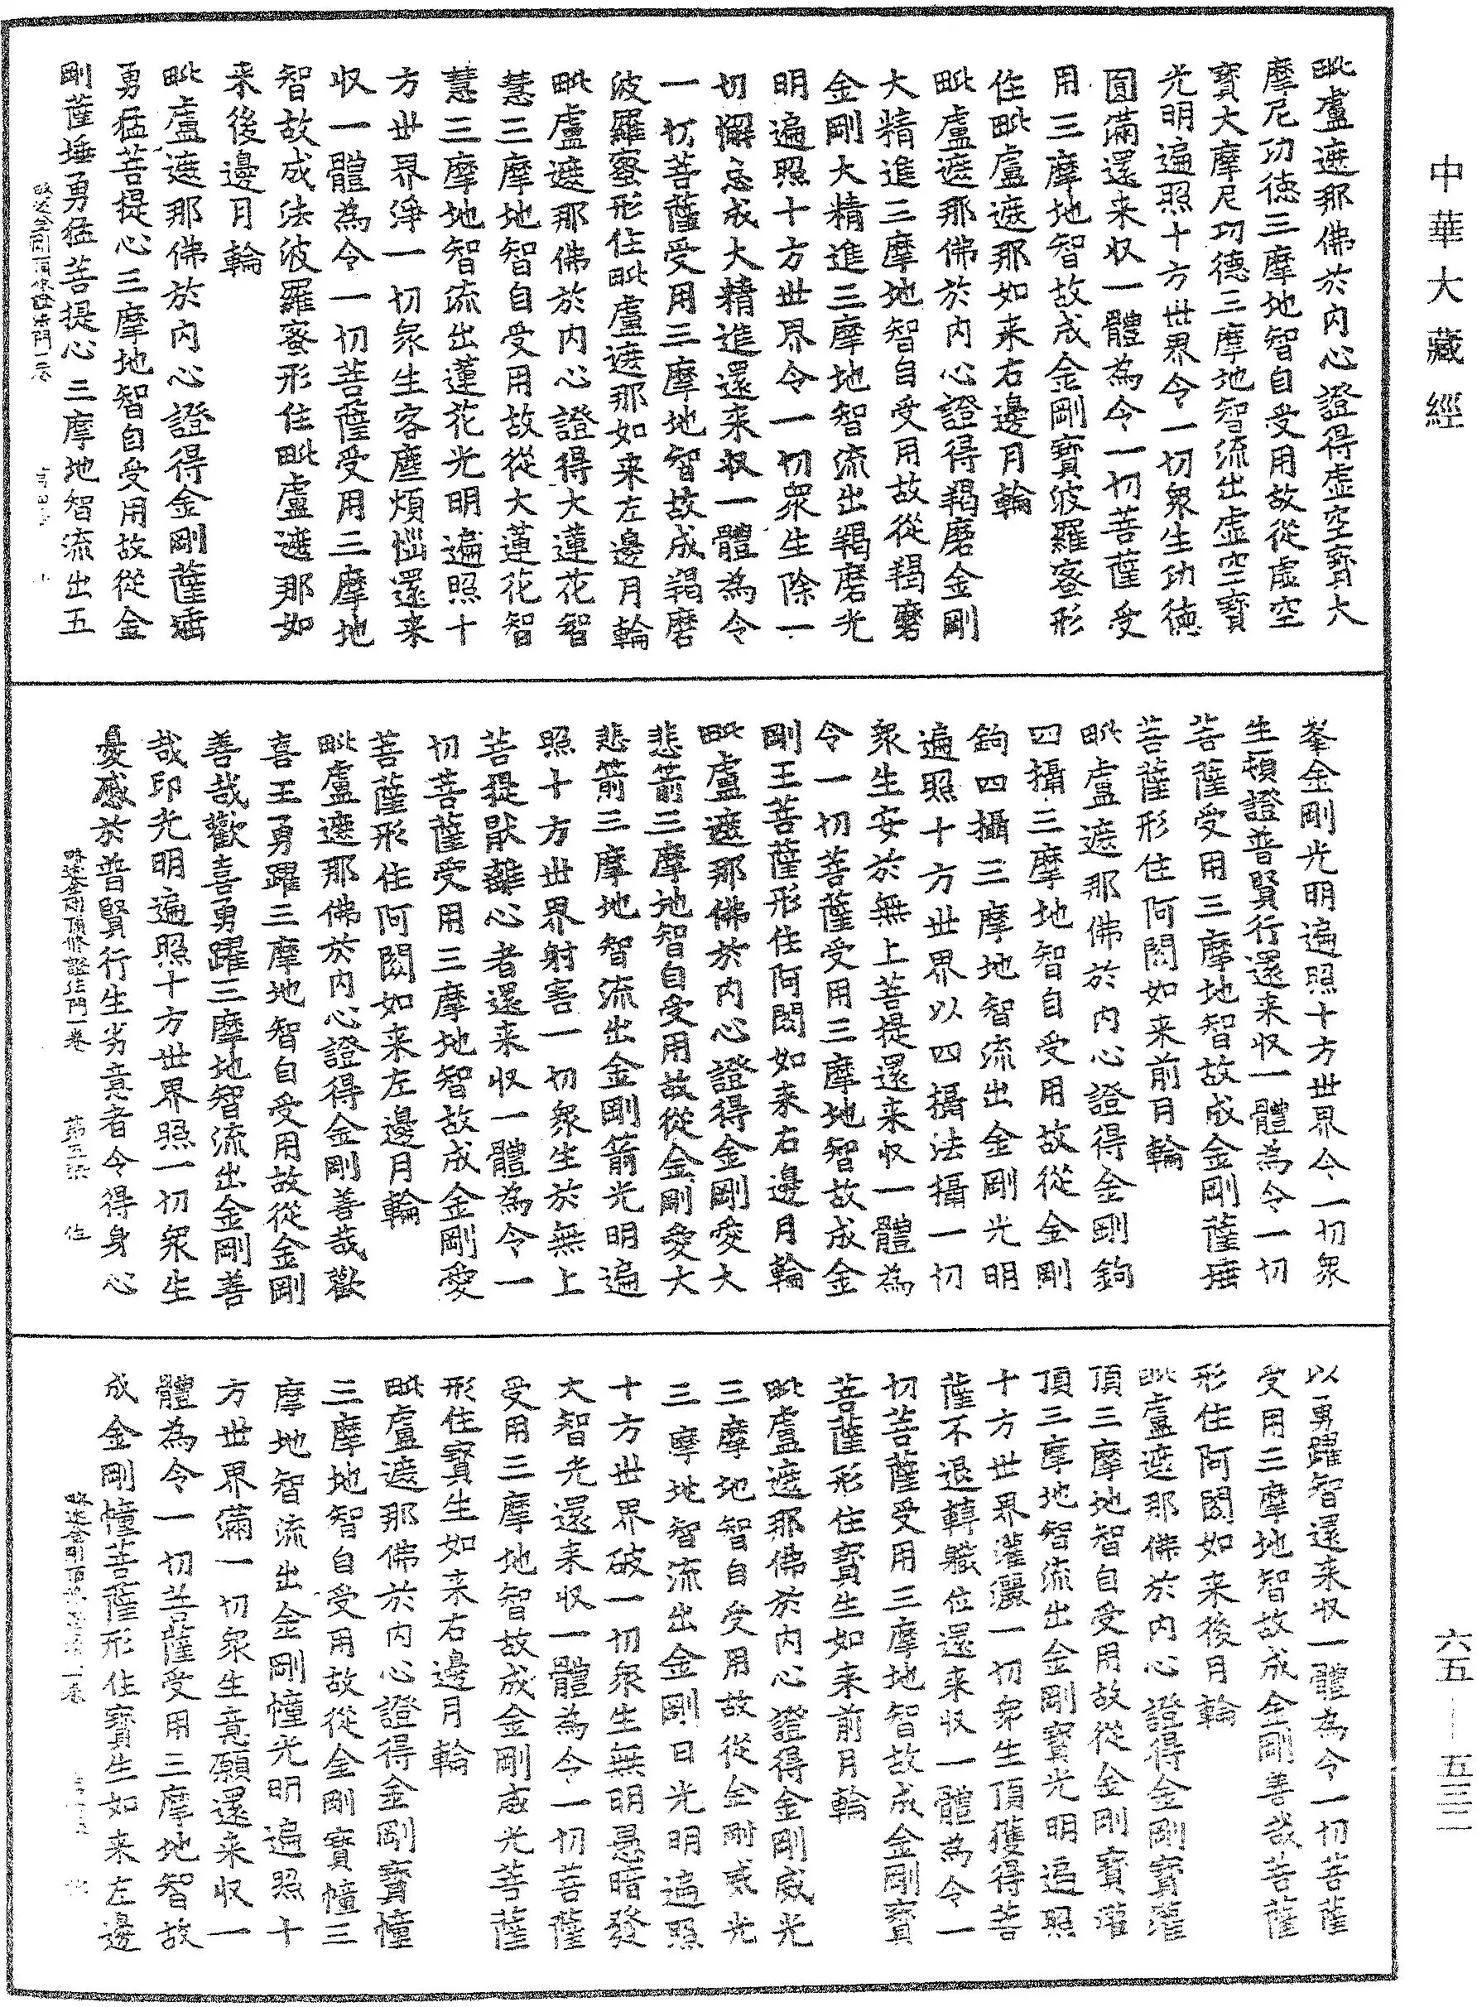 中華大藏經
毗盧遮那佛於内心證得虛空寶大
摩尼功德三摩地智自受用故從虛空
寶大摩尼功德三摩地智流出虛空寶
光明遍照十方世界令一切衆生功德
圓滿還来収一體為令一切菩薩受
用三摩地智故成金剛寶波羅蜜形
住毗盧遮那如来右邊月輪
毗盧遮那佛於内心證得羯磨金剛
大精進三摩地智自受用故從羯磨
金剛大精進三摩地智流出羯磨光
明遍照十方世界令一切衆生除一
切懈怠成大精進還来収一體為令
一切菩薩受用三摩地智故成羯磨
波羅蜜形住毗盧遮那如来左邊月輪
毗盧遮那佛於内心證得大蓮花智
慧三摩地智自受用故從大蓮花智
慧三摩地智流出蓮花光明遍照十
方世界淨一切衆生客塵煩惱還来
収一體為令一切菩薩受用三摩地
智故成法波羅蜜形住毗盧遮那如
来後邊月輪
毗盧遮那佛於内心證得金剛薩埵
勇猛菩提心三摩地智自受用故從金
剛薩埵勇猛菩提心三摩地智流出五
峯金剛光明遍照十方世界令一切衆
生頓證普賢行還来収一體為令一切
菩薩受用三摩地智故成金剛薩埵
菩薩形住阿閦如来前月輪
毗盧遮那佛於内心證得金剛鉤
四攝三摩地智自受用故從金剛
鉤四攝三摩地智流出金剛光明
遍照十方世界以四攝法攝一切
衆生安於無上菩提還来収一體為
令一切菩薩受用三摩地智故成金
剛王菩薩形住阿閦如来右邊月輪
毗盧遮那佛於内心證得金剛愛大
悲箭三摩地智自受用故從金剛愛大
悲箭三摩地智流出金剛箭光明遍
照十方世界射害一切衆生於無上
菩提猒離心者還来収一體為令一
切菩薩受用三摩地智故成金剛愛
菩薩形住阿閦如来左邊月輪
毗盧遮那佛於内心證得金剛善哉歡
喜王勇躍三摩地智自受用故從金剛
善哉歡喜勇躍三摩地智流出金剛善
哉印光明遍照十方世界照一切衆生
憂慼於普賢行生劣意者令得身心
略述金剛頂修證法門一卷 第三張 住
以勇躍智還来収一體為令一切菩薩
受用三摩地智故成金剛善哉菩薩
形住阿閦如来後月輪
毗盧遮那佛於内心證得金剛寶灌
頂三摩地智自受用故從金剛寶灌
頂三摩地智流出金剛寶光明遍照
十方世界灌灑一切衆生頂獲得菩
薩不退轉職位還来収一體為令一
切菩薩受用三摩地智故成金剛寶
菩薩形住寶生如来前月輪
毗盧遮那佛於内心證得金剛威光
三摩地智自受用故從金剛威光
三摩地智流出金剛日光明遍照
十方世界破一切衆生無明愚暗發
大智光還来収一體為令一切菩薩
受用三摩地智故成金剛威光菩薩
形住寶生如来右邊月輪
毗盧遮那佛於内心證得金剛寶幢
三摩地智自受用故從金剛寶幢三
摩地智流出金剛幢光明遍照十
方世界滿一切衆生意願還来収一
體為令一切菩薩受用三摩地智故
成金剛幢菩薩形住寶生如来左邊
六五—五三二